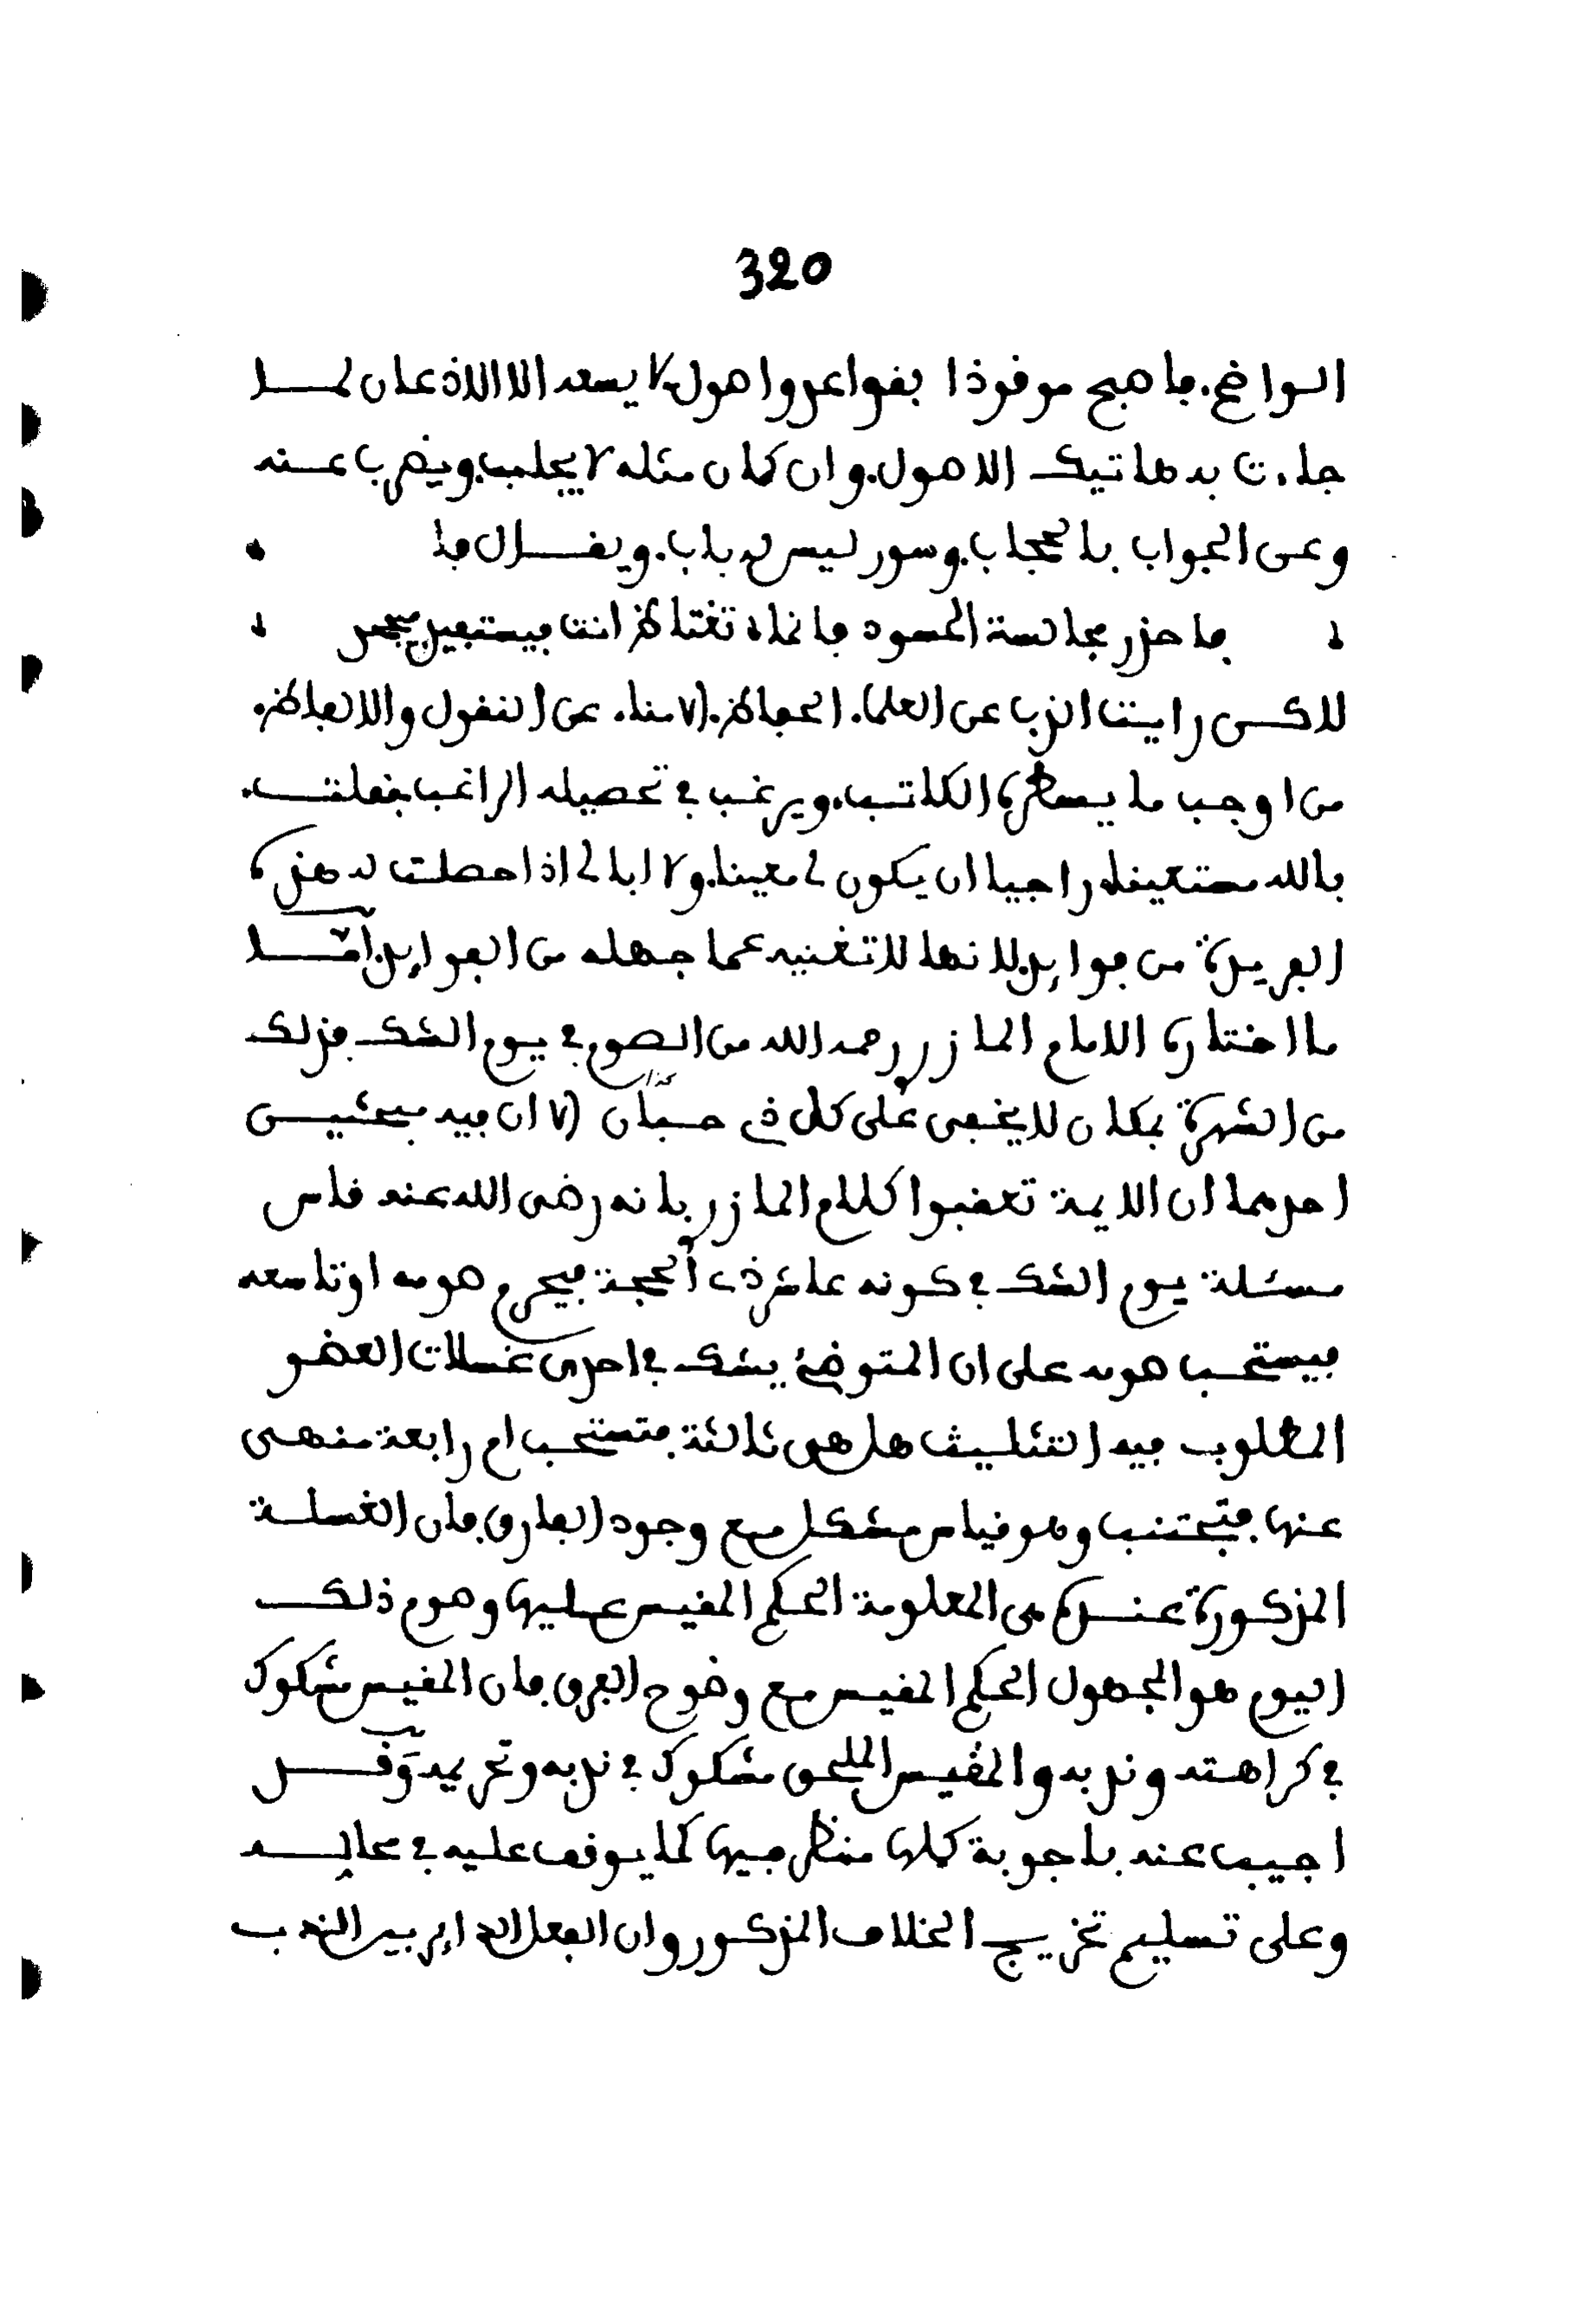 320
الواضح. فاصبح موقوذا بقواعد واصول. لا يسعه الا الاذعان لما
جاءت به هاتيك الاصول. وان كان مثله لا يجاب. ويضرب عنه
وعن الجواب بالحجاب. وسور ليس له باب. ويقال فيها
فاحذر مجالسة الحسود فانما تغتاظ انت فيستفيد
لاكن رايت الذب عن العلماء. الحفاظ. الامناء. عن النقول والالفاظ.
من اوجب ما يسطره الكاتب. ويرغب في تحصيله الراغب فقلت.
بالله مستعينا. راجيا ان يكون لي معينا. ولا ابالي اذا حصلت له هذه
الفريدة من فوايد. لانها لا تغنيه عما جهله من الفوايد. اما
ما اختاره الامام المازري رحمه الله من الصوم في يوم الشك فذلك
من الشهرة بمكان لا يخفى على كل ذي حسبان الا ان فيه مبحثين
احدهما ان الايمة تعقبوا كلام المازري بانه رضى الله عنه قاس
مسئلة يوم الشك في كونه عاشر ذي الحجة فيحرم صومه او تاسعه
فيستحب صومه على ان المتوضئ يشك في احدى غسلات العضو
المطلوب فيه التثليث هل هى ثالثة فتستحب ام رابعة منهى
عنها فتجتنب وهو قياس مشكل مع وجود الفارق فان الغسلة
المذكورة عنده من المعلومة الحكم المقيس عليها وصوم ذلك
اليوم هو المجهول الحكم المقيس مع وضوح الفرق فان المقيس مشكوك
في كراهته وندبه والمقيس الملحق مشكوك في ندبه وتحريمه وقد
اجيب عنه باجوبة كلها منظر فيها كما يوقف عليه في محاله
وعلى تسليم تخريج الخلاف المذكور وان الفعل الدايـر بين الندب